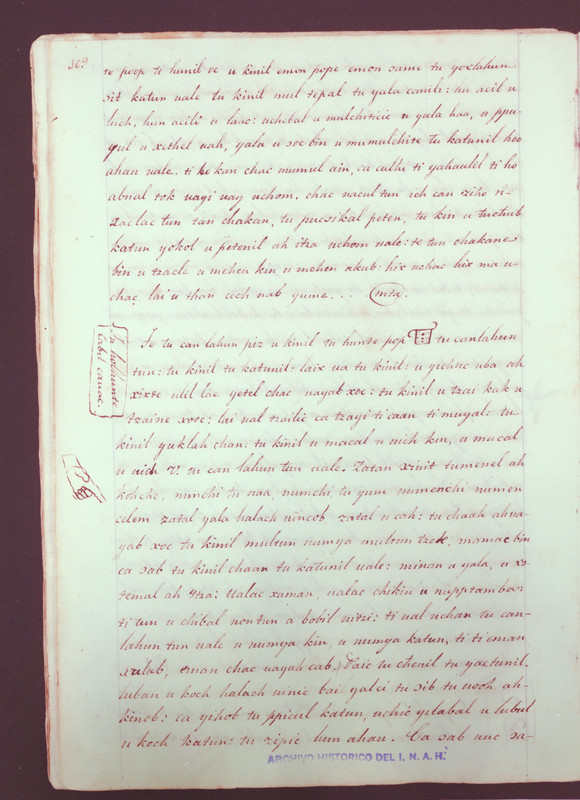 309
te poop ti hunil ve u kinil emon pope emon same tu yoxlahun
sit katun uale tu kinil mul tepal tu yala canib: hu acil u
luch, hun acili u laac: uchebal u mulchiticie u yala haa, u ppu-
yul u xethel uah, yala u soc bin u mumulchite tu katunil hoo
ahau uale. ti ke kan chac mumul ain, ca culhi ti yahaulil ti ho
abnal tok uayi uay uchom, chac nacul tun ich can ziho ri-
zaclac tun tan chakan, tu pucsikal peten, tu kin u tuchub
katun yokol u petenil ah itza uchom uale: te tun chakane
bin u tzacle u mehen kin, u mehen akab: hix uchac hix ma u-
chac lai u than cech nab yume... mta.
Tu holhunte
cabil cauac.
Te tu can lahun piz u kinil tu hunte pop tu canlahun
tun: tu kinil tu katunil: laix ua tu kinil: u yichtic uba ah
xixte ulil lac yetel chac uayab xoc: tu kinil u tzai kak u
tzaine xooc: lai ual tzailic ca tzayi ti caan ti muyal: tu
kinil yuklah chan: tu kinil u macal u uich kin, u macal
u uich U. tu can lahun tun uale. Zatan xiuit tumenel ah
kohche, numchi tu naa, numchi, tu yum numenchi numen
celem zatal yala halach uincob zatal u cah: tu chaah ahua-
yab xoc tu kinil multun numya multun tzek, mamac bin
ca sab tu kinil chaan tu katunil uale: minan u yala, u xo
temal ah Ytza: Ualac xaman, ualac chikin u nupptamba:
ti tun u chibal non tun a bobil uitzi: ti ual uchan tu can-
lahun tun uale u numya kin, u numya katun, ti ti eman
xulab, eman chac uayah cab. Vaic tu chenil tu yactunil.
luban u koch halach uinic bai yalci tu sib tu uooh ah-
kinob: ca yihob tu ppicul katun, uchic yilabal u lubul
u koch katun: tu zipic hun ahau. Ca sab uuc sa-
ARCHIVO HISTORICO DEL I. N. A. H.